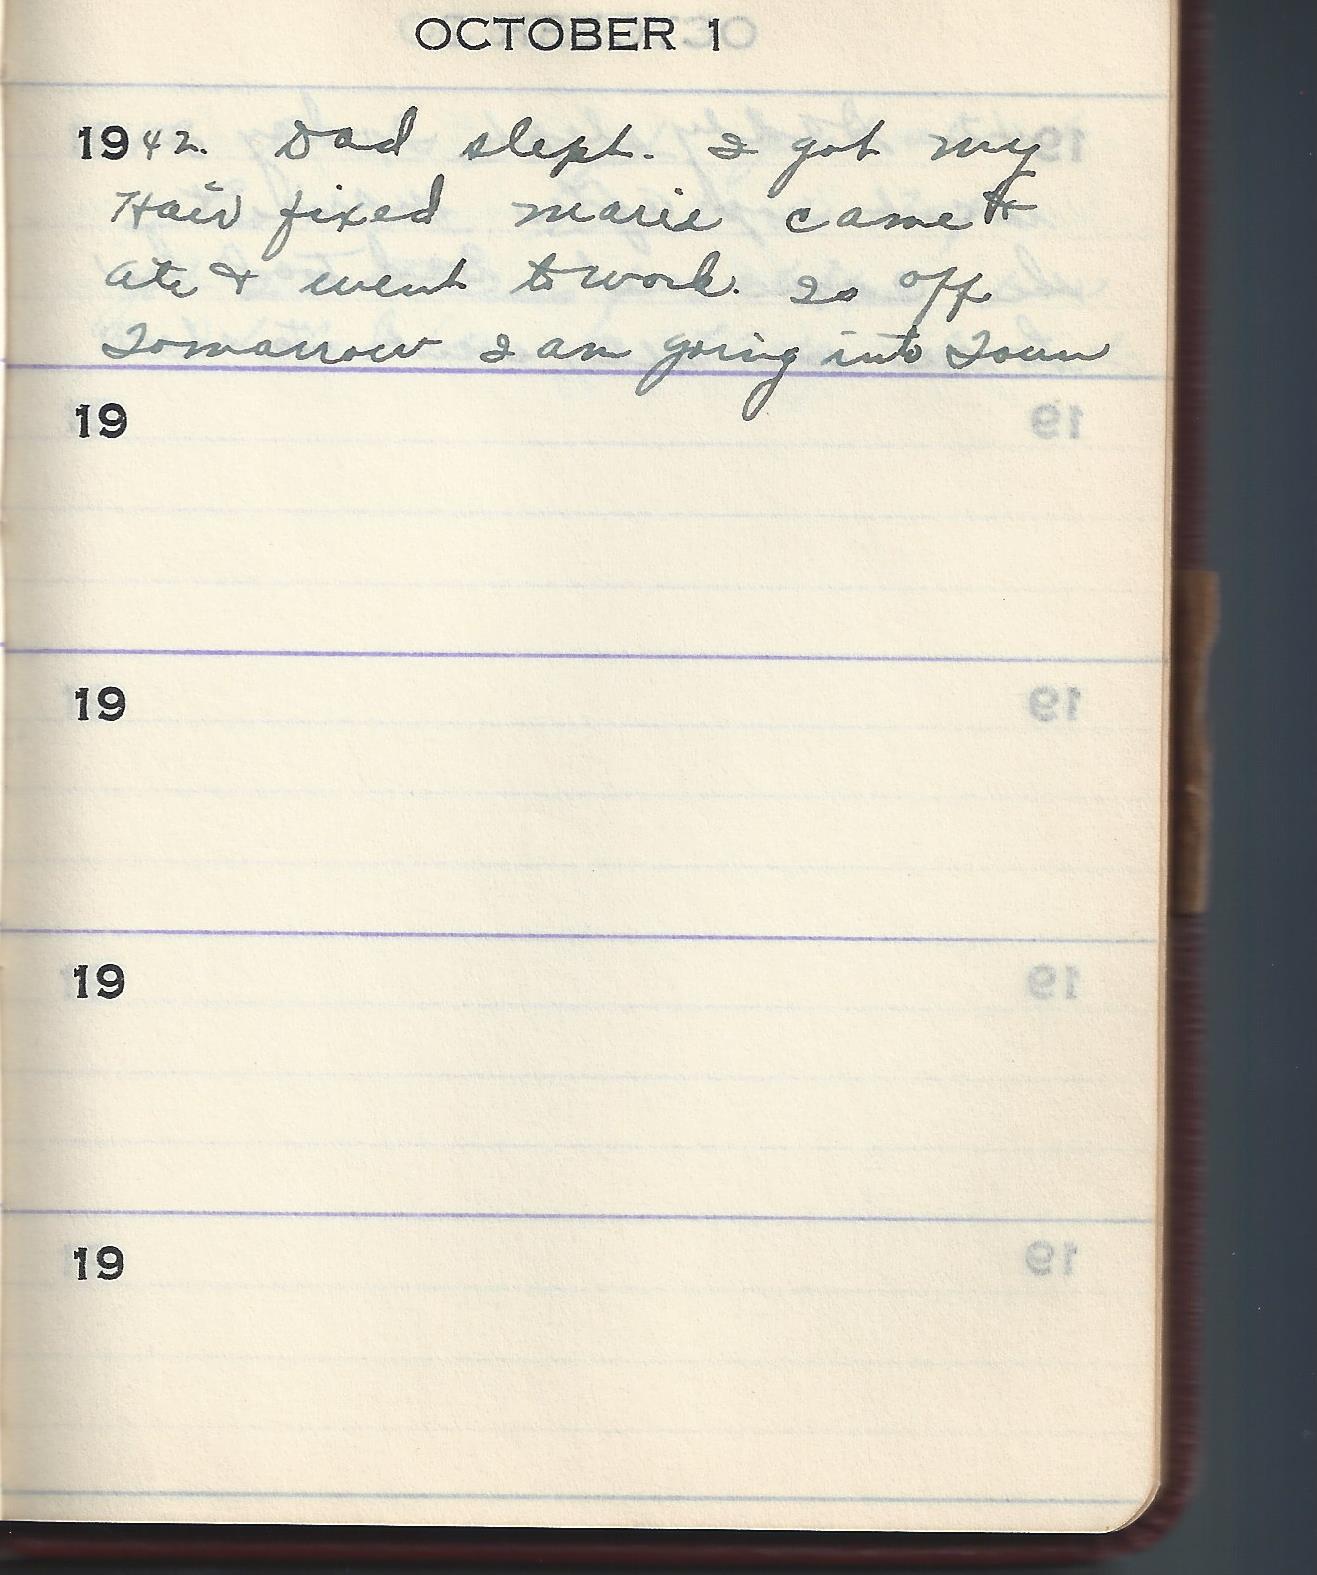 OCTOBER 1
1942. Dad slept. I got my
Hair fixed marie came &
ate & went to work. Is off
Tomarrow I am going into Town
19
19
19
19